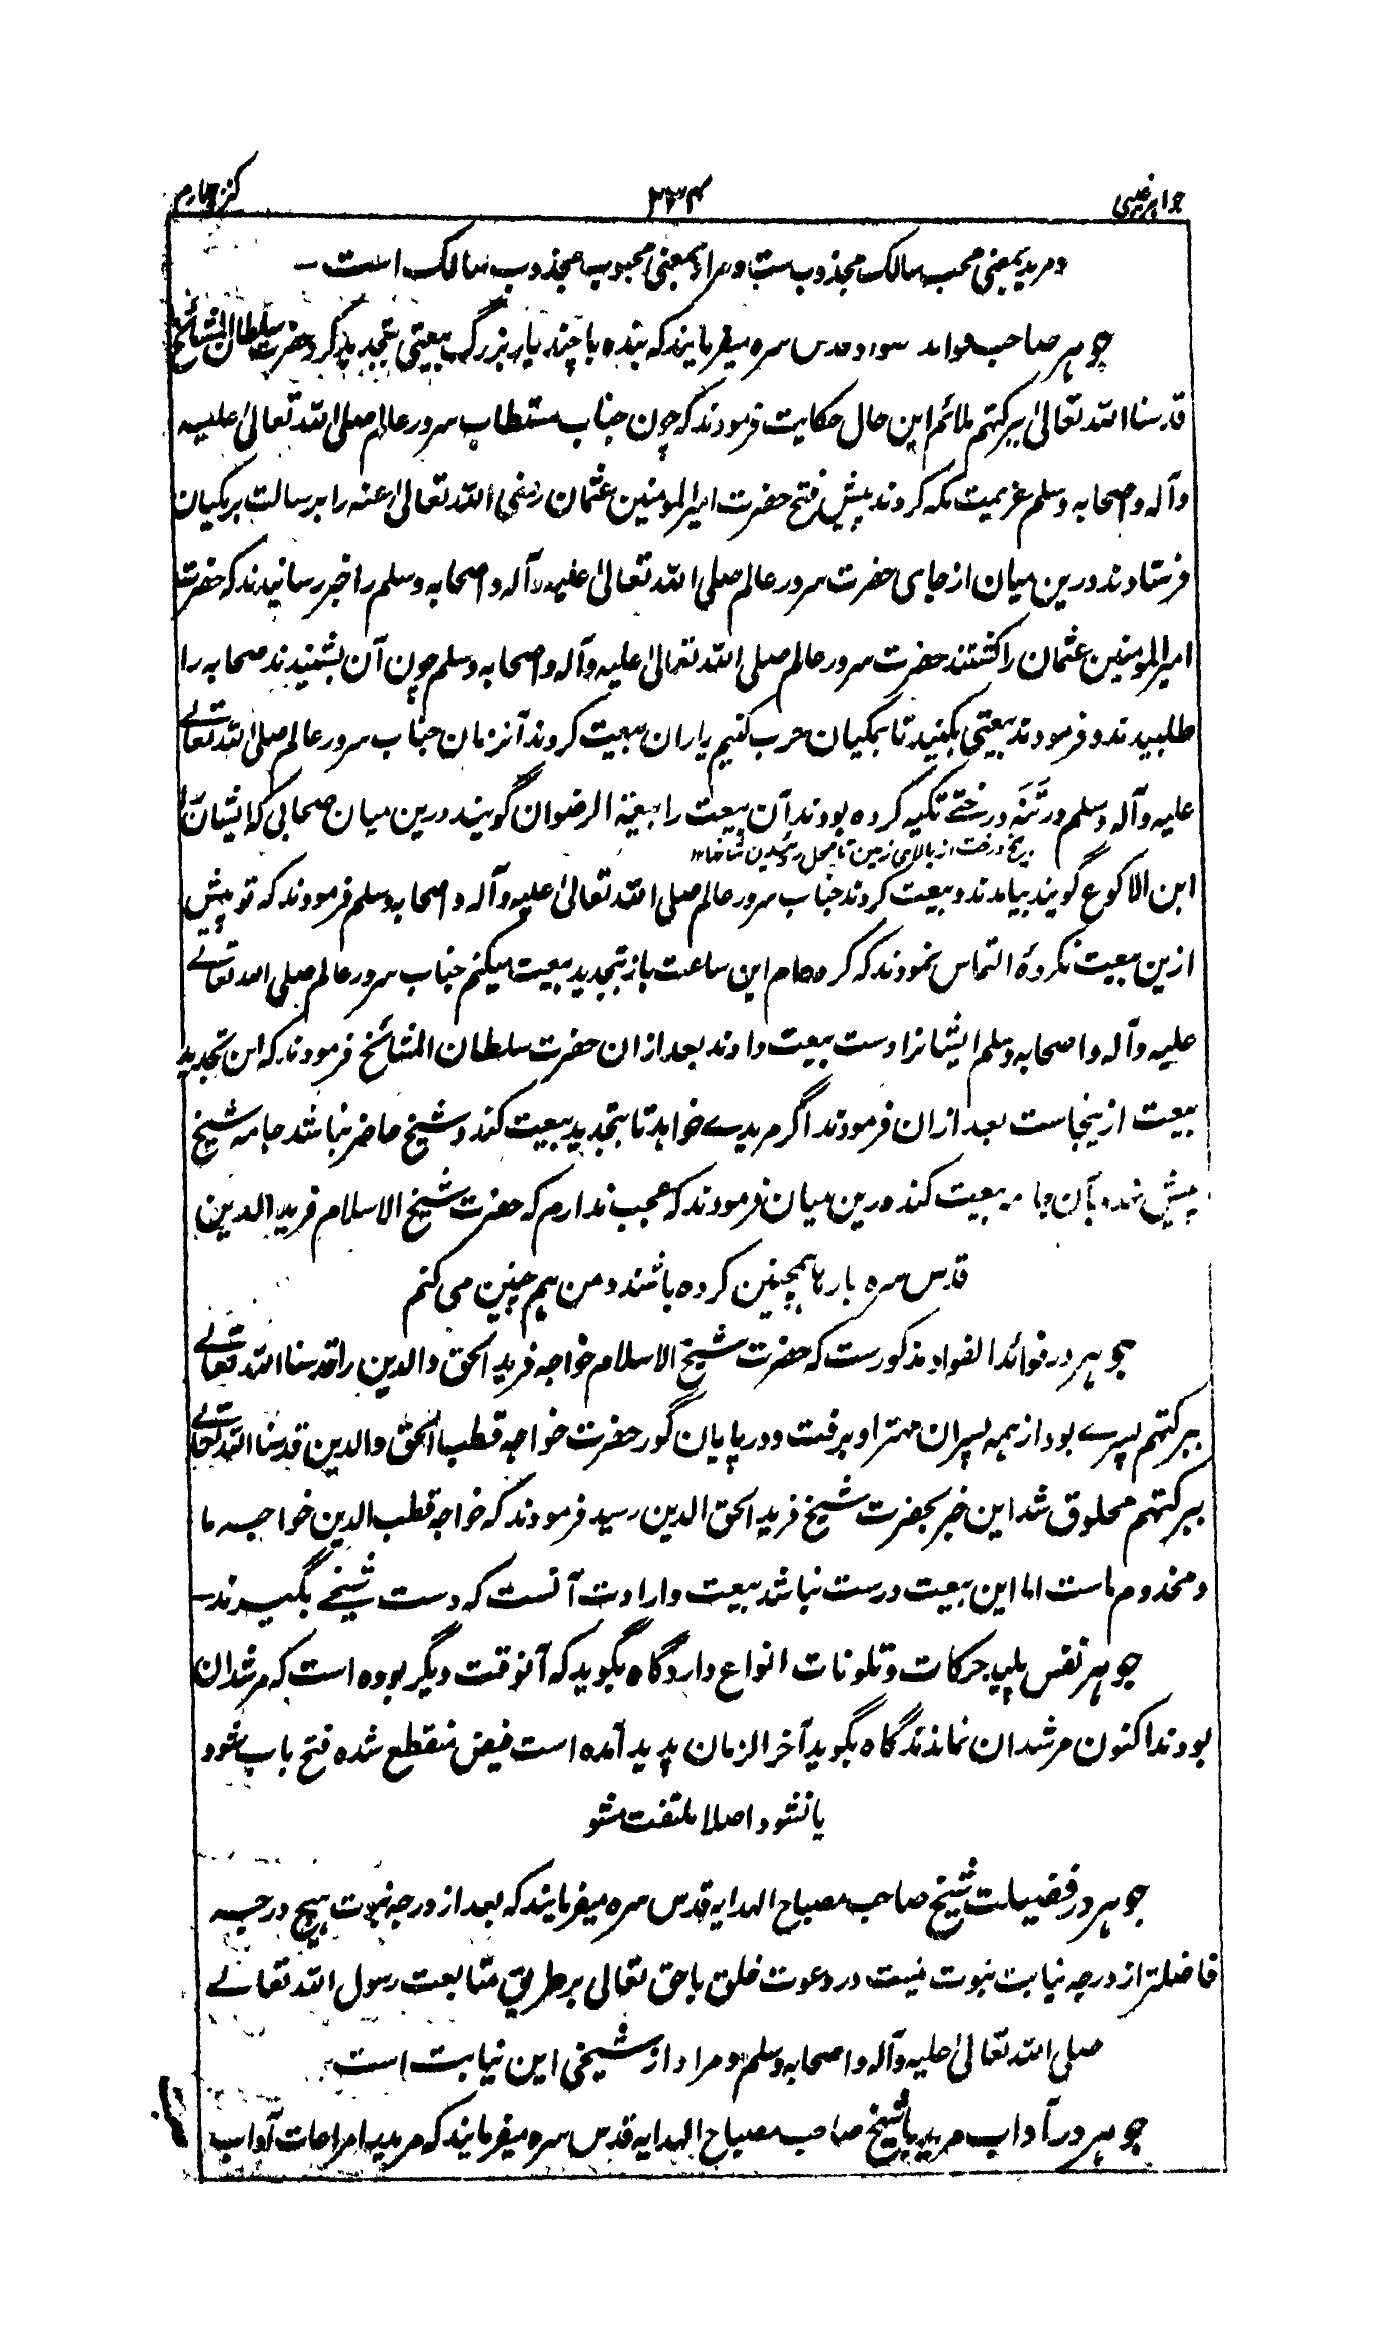 جواهر غیبی ۲۳۴ کنز چهارم
و مرید بمعنی محب سالک مجذوب ست و مراد بمعنی محبوب مجذوب سالک است –
جوهر صاحب فواید سواد قدس سره میفرمایند که بنده با چند یار بزرگ بیعتی بتجدید کرد حضرت سلطان المشائخ
قدسنا الله تعالیٰ ببرکتهم ملائم این حال حکایت فرمودند که چون جناب مستطاب سرور عالم صلی الله تعالیٰ علیه
وآله و صحابه وسلم عزیمت مکه کردند پیش فتح حضرت امیر المومنین عثمان رضی الله تعالیٰ عنه را برسالت بر مکیان
فرستادند درین میان از جای حضرت سرور عالم صلی الله تعالیٰ علیه وآله و اصحابه وسلم را خبر رسانیدند که حضرت
امیر المومنین عثمان را کشتند حضرت سرور عالم صلی الله تعالیٰ علیه وآله و اصحابه وسلم چون آن بشنیدند صحابه را
طلبیدند و فرمودند بیعتی بکنید تا بمکیان حرب کنیم یاران بیعت کردند آنزمان جناب سرور عالم صلی الله تعالے
علیه وآله وسلم در تَنَهٔ درختے تکیه کرده بودند آن بیعت را بیعة الرضوان گویند درین میان صحابی که ایشان را
بیخ درخت از بالای زمین تا محل روئیدن شاخها ۱۲
ابن الاکوع گویند بیامدند و بیعت کردند جناب سرور عالم صلی الله تعالیٰ علیه وآله و اصحابه وسلم فرمودند که تو پیش
ازین بیعت نکردۂ التماس نمودند که کرده ام این ساعت باز بتجدید بیعت میکنم جناب سرور عالم صلی الله تعالے
علیه وآله و اصحابه وسلم ایشانرا دست بیعت دادند بعد ازان حضرت سلطان المشائخ فرمودند که این تجدید
بیعت ازینجاست بعد ازان فرمودند اگر مریدے خواهد تا بتجدید بیعت کند و شیخ حاضر نباشد جامه شیخ
پیش نهد بآن جامه بیعت کند درین میان فرمودند که عجب ندارم که حضرت شیخ الاسلام فرید الدین
قدس سره بارها همچنین کرده باشند و من هم چنین می کنم
جوهر در فوائد الفواد مذکورست که حضرت شیخ الاسلام خواجه فرید الحق والدین را قدسنا الله تعالے
ببرکتهم پسرے بود از همه پسران مهتر او برفت و در پایان گور حضرت خواجه قطب الحق والدین قدسنا الله تعالے
ببرکتهم محلوق شد این خبر بحضرت شیخ فرید الحق الدین رسید فرمودند که خواجه قطب الدین خواجه ما
و مخدوم ماست اما این بیعت درست نباشد بیعت و ارادت آنست که دست شیخے بگیرند –
جوهر نفس پلید حرکات و تلونات انواع دارد گاه بگوید که آنوقت دیگر بوده است که مرشدان
بودند اکنون مرشدان نماندند گاه بگوید آخر الزمان پدید آمده است فیض منقطع شده فتح باب شود
یا نشود اصلا ملتفت مشو
جوهر در فضیلت شیخ صاحب مصباح الهدایه قدس سره میفرمایند که بعد از درجه نبوت هیچ درجه
فاضلتر از درجه نیابت نبوت نیست در دعوت خلق با حق تعالی بر طریق متابعت رسول الله تعالے
صلی الله تعالیٰ علیه وآله و اصحابه وسلم و مراد از شیخی این نیابت است
جوهر در آداب مرید با شیخ صاحب مصباح الهدایه قدس سره میفرمایند که مرید را مراعات آداب